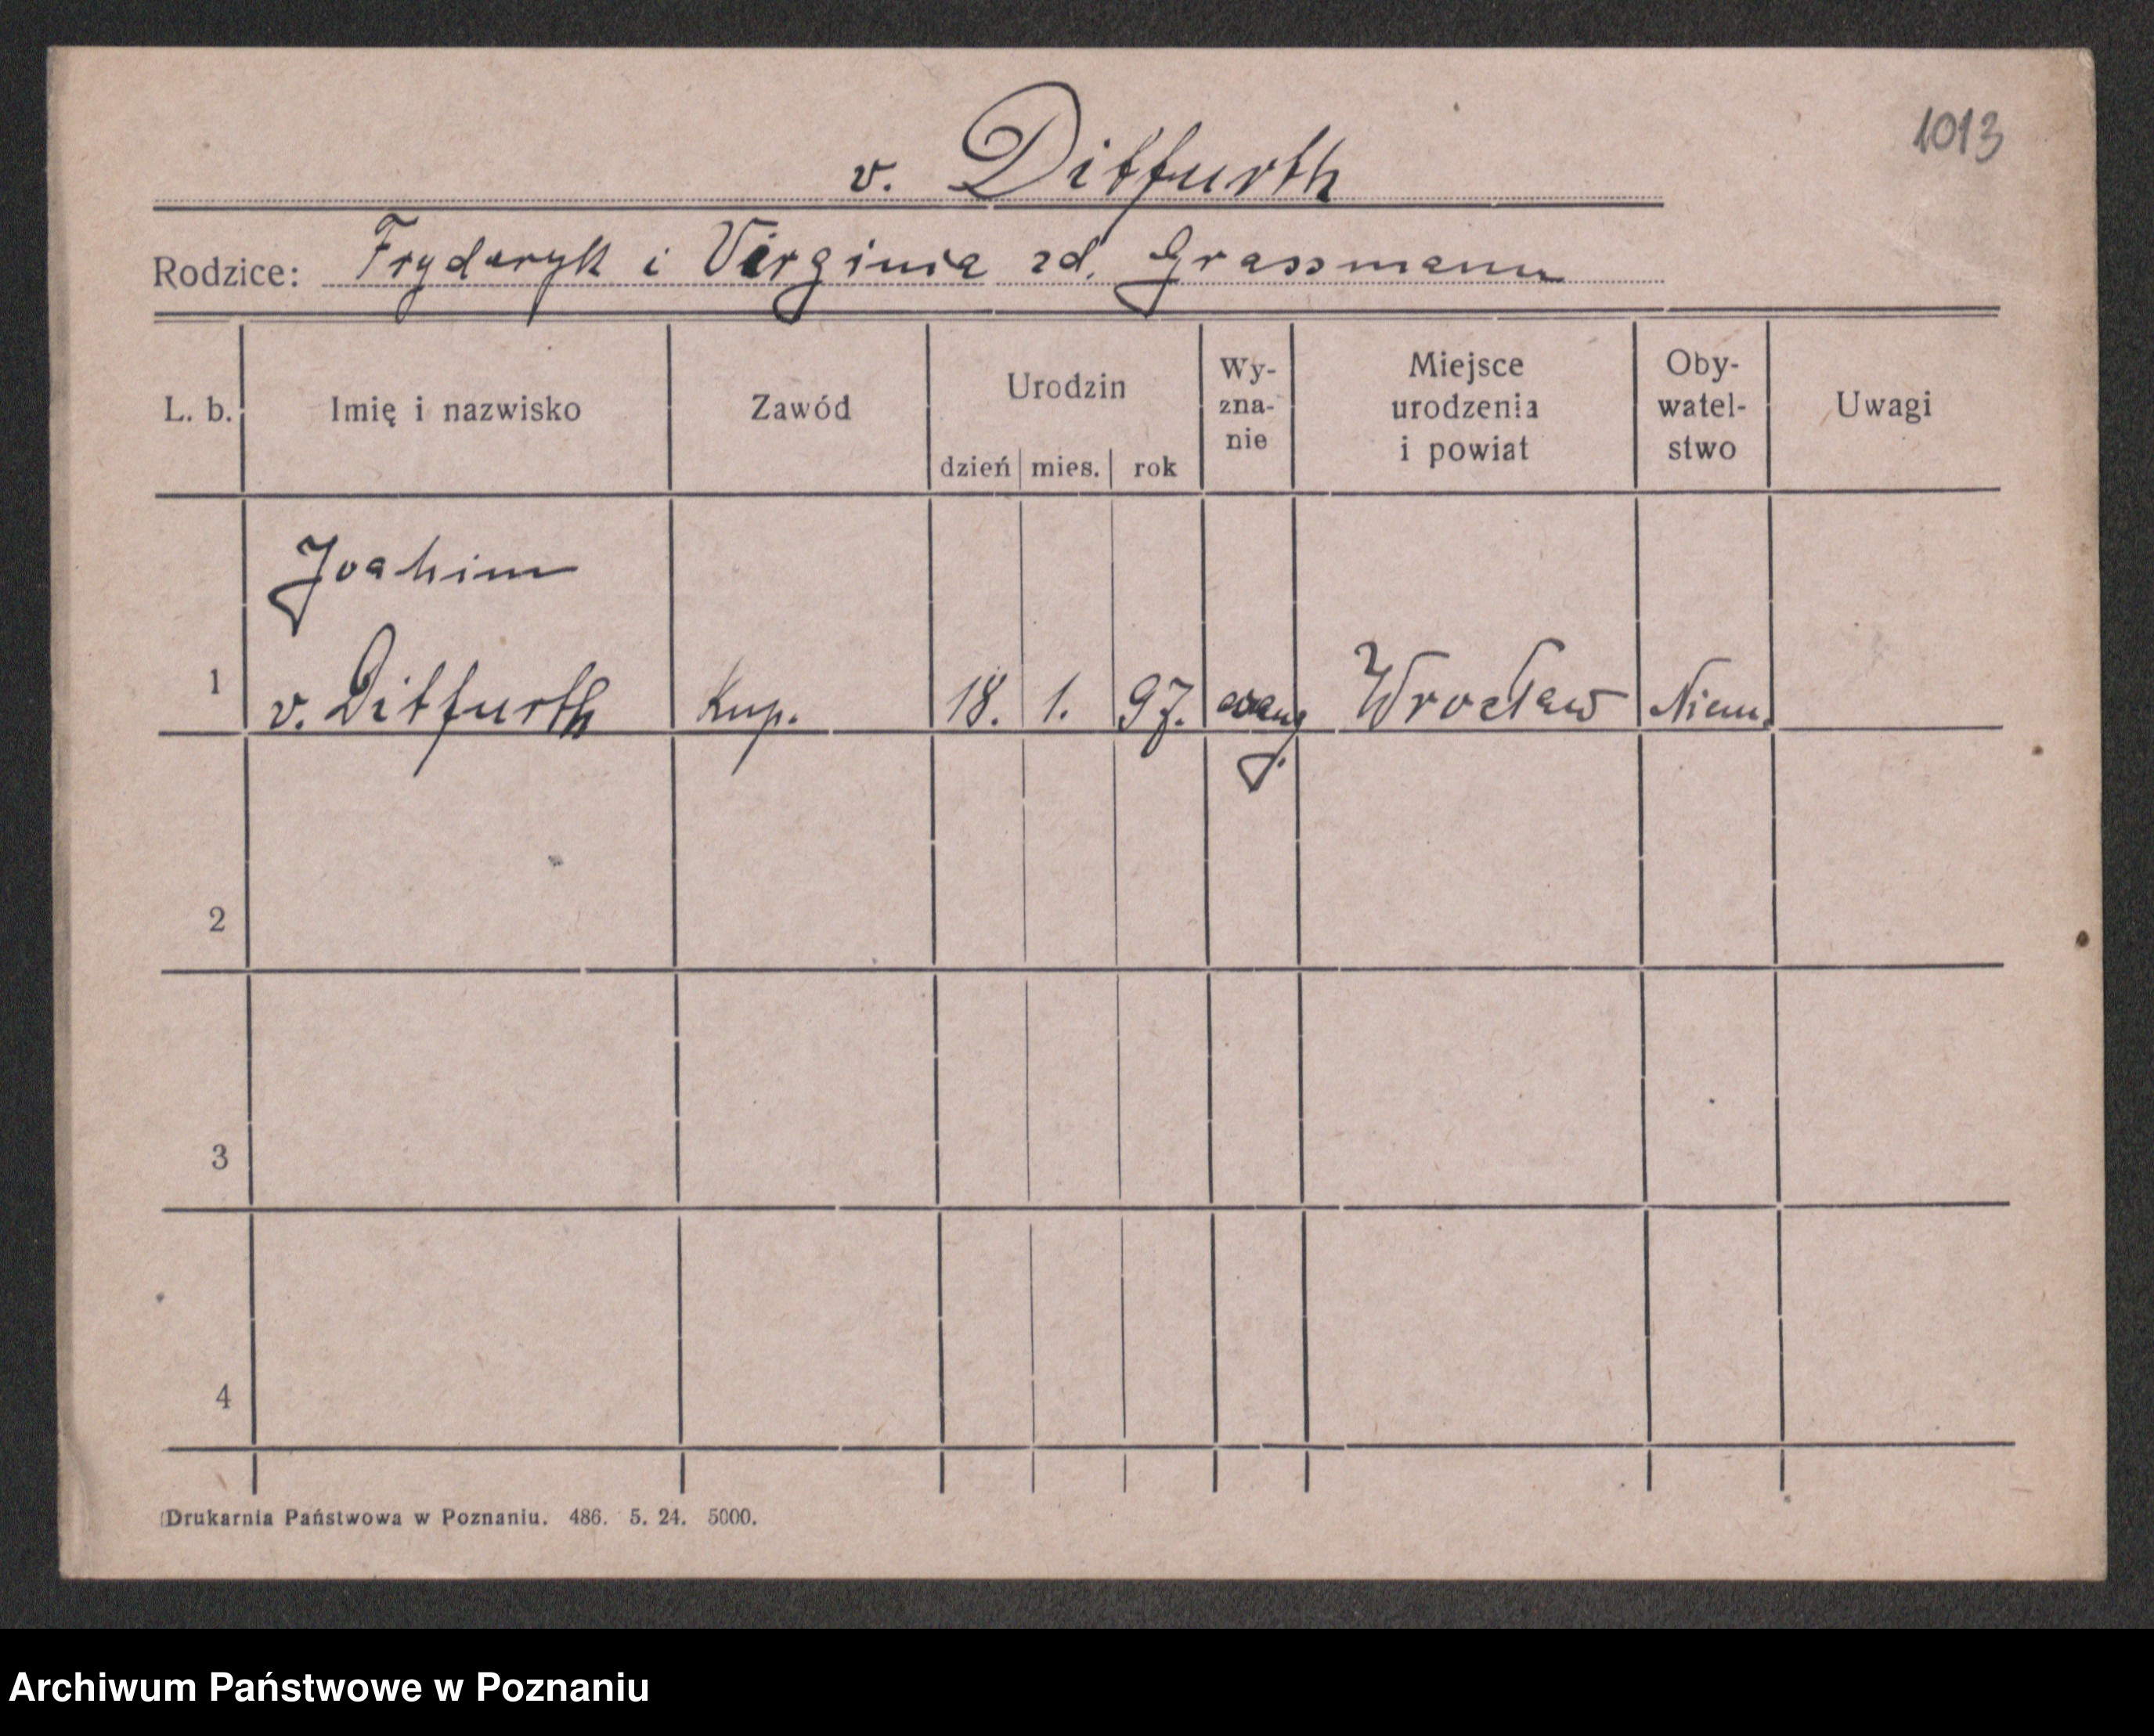 1013
v. Ditfurth
Rodzice: Fryderyk i Virginia zd. Grassmann
L. b. Imię i nazwisko Zawód Urodzin dzień mies. rok Wy-zna-nie Miejsce urodzenia i powiat Oby-watel-stwo Uwagi
Joahim
1 v. Ditfurth Kup. 18. 1. 97. ewang. Wrocław Niem.
2
3
4
Drukarnia Państwowa w Poznaniu. 486. 5. 24. 5000.
Archiwum Państwowe w Poznaniu